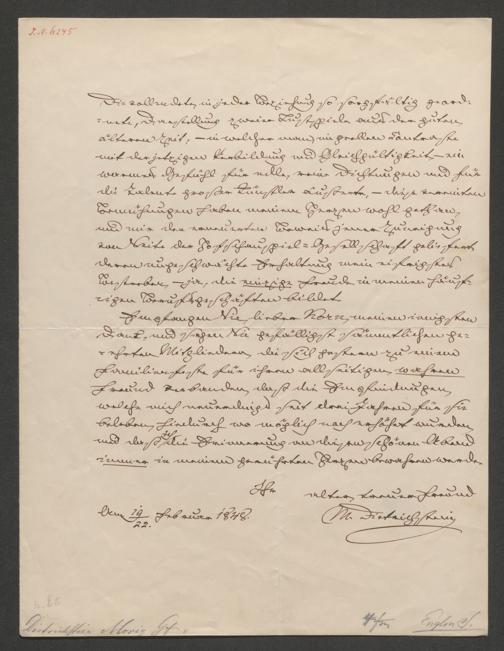 I.N. 6245
Die vollendete, in jeder Beziehung so sorgfältig geord-
=nete, Darstellung zweier Lustspiele aus der guten
älteren Zeit, – in welcher man, im grellen Contraste
mit der jetzigen Verbildung und Gleichgültigkeit – ein
warmes Gefühl für edle, reine Dichtungen und für
die Talente großer Künstler äußerte, – diese vereinten
Bemühungen haben meinem Herzen wohl gethan,
und mir den erneuerten Beweis jener Zuneigung
von Seite der Hofschauspiel=Gesellschaft geliefert,
deren ungeschwächte Erhaltung mein eifrigstes
Bestreben, – ja, die einzige Freude in meinen häufi-
gen Berufsgeschäften bildet.
Empfangen Sie, lieber Korn, meinen innigsten
Dank, und sagen Sie gefälligst sämmtlichen ge-
ehrten Mitgliedern, die sich gestern zu einem
Familienfeste für ihren allseitigen wahren
Freund verbanden, daß die Empfindungen,
welche mich neuerdings seit drei Jahren für sie
beleben, hiedurch wo möglich noch erhöht wurden
und daß die Erinnerung an diesen schönen Abend
immer in meinem gerührten Herzen bewahren werde.
Ihr
alter treuer Freund
M. Dietrichstein
Am 19/22. Februar 1848.
Dietrichstein Moriz Gf.